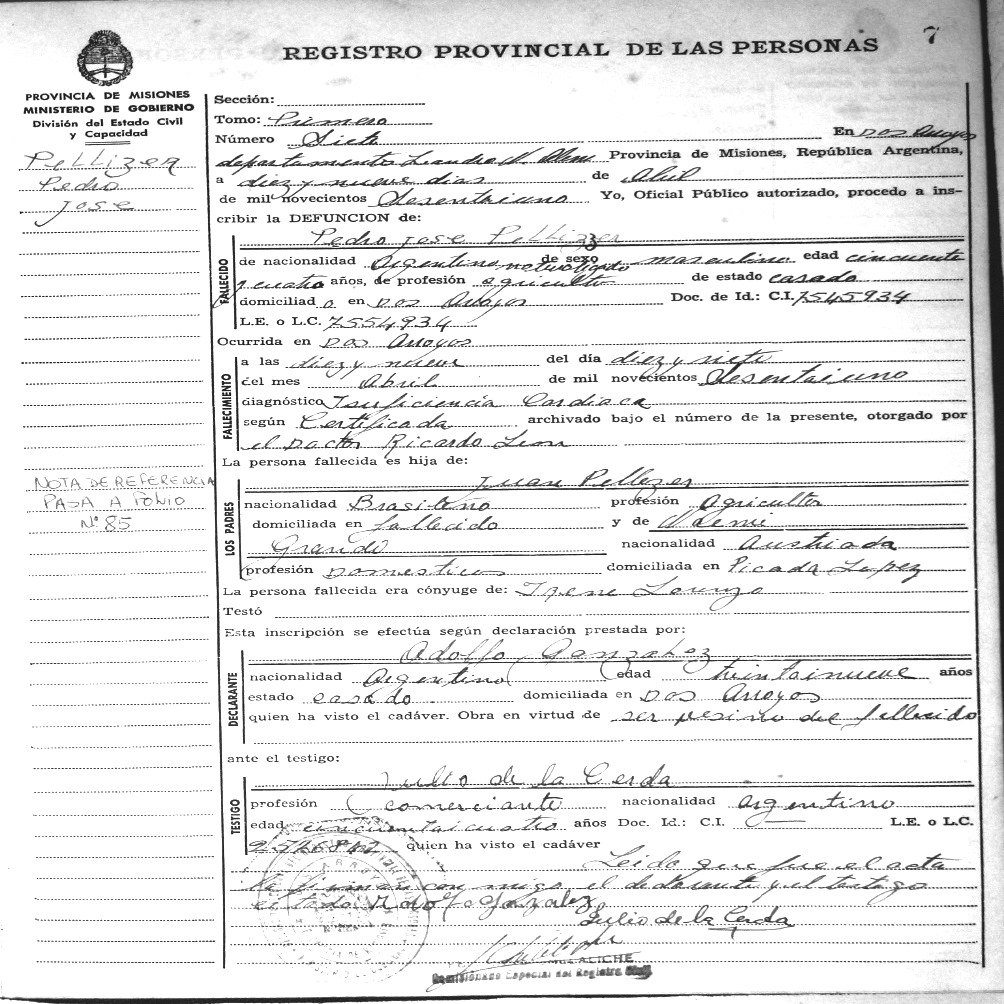 7
REGISTRO PROVINCIAL DE LAS PERSONAS
PROVINCIA DE MISIONES
MINISTERIO DE GOBIERNO
División del Estado Civil
y Capacidad
PELLIZER
Pedro
José
NOTA DE REFERENCIA
PASA A FOLIO
Nº 85
Sección:
Tomo: Primero
Número Siete En Dos Arroyos
departamento Leandro N. Alem Provincia de Misiones, República Argentina,
a diez y nueve dias de Abril
de mil novecientos sesentaiuno Yo, Oficial Público autorizado, procedo a ins-
cribir la DEFUNCION de:
Pedro Jose Pellizer
FALLECIDO
de nacionalidad Argentino naturalizado de sexo masculino edad cincuenta
y cuatro años, de profesión agricultor de estado casado
domiciliado en Dos Arroyos Doc. de Id.: C.I. 7545934
L.E. o L.C. 7554934
Ocurrida en Dos Arroyos
FALLECIMIENTO
a las diez y nueve del día diez y siete
del mes Abril de mil novecientos sesentaiuno
diagnóstico Isuficiencia Cardiaca
según Certificada archivado bajo el número de la presente, otorgado por
el Doctor Ricardo Leon
La persona fallecida es hija de:
LOS PADRES
Juan Pellezer
nacionalidad Brasileño profesión Agricultor
domiciliada en fallecido y de
Grando nacionalidad Austriada
profesión Domesticos domiciliada en Picada Lopez
La persona fallecida era cónyuge de: Irene Lorenzo
Testó
Esta inscripción se efectúa según declaración prestada por:
DECLARANTE
Adolfo Gonzalez
nacionalidad Argentino edad treintainueve años
estado casado domiciliada en Dos Arroyos
quien ha visto el cadáver. Obra en virtud de ser vesino del fallecido
ante el testigo:
TESTIGO
Julio de la Cerda
profesión comerciante nacionalidad argentino
edad cincuentaicuatro años Doc. Id.: C.I. — L.E. o L.C.
quien ha visto el cadáver
Leido que fue el acta
la firman con migo el declarante y el testigo
citado Adolfo Gonzalez
Julio de la Cerda
Comisionado Especial del Registro Civil